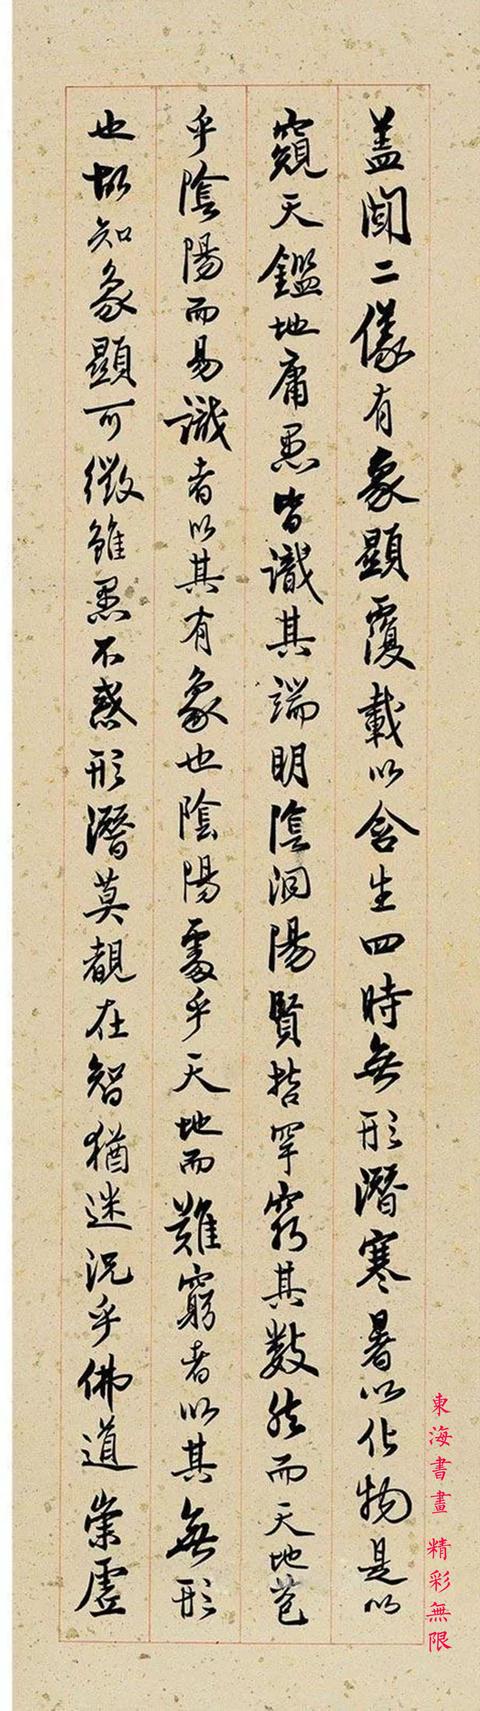 蓋聞二儀有象顯覆載以含生四時無形潛寒暑以化物是以
窺天鑑地庸愚皆識其端明陰洞陽賢哲罕窮其數然而天地苞
乎陰陽而易識者以其有象也陰陽處乎天地而難窮者以其無形
也故知象顯可徵雖愚不惑形潛莫覩在智猶迷況乎佛道崇虛
東海書畫 精彩無限